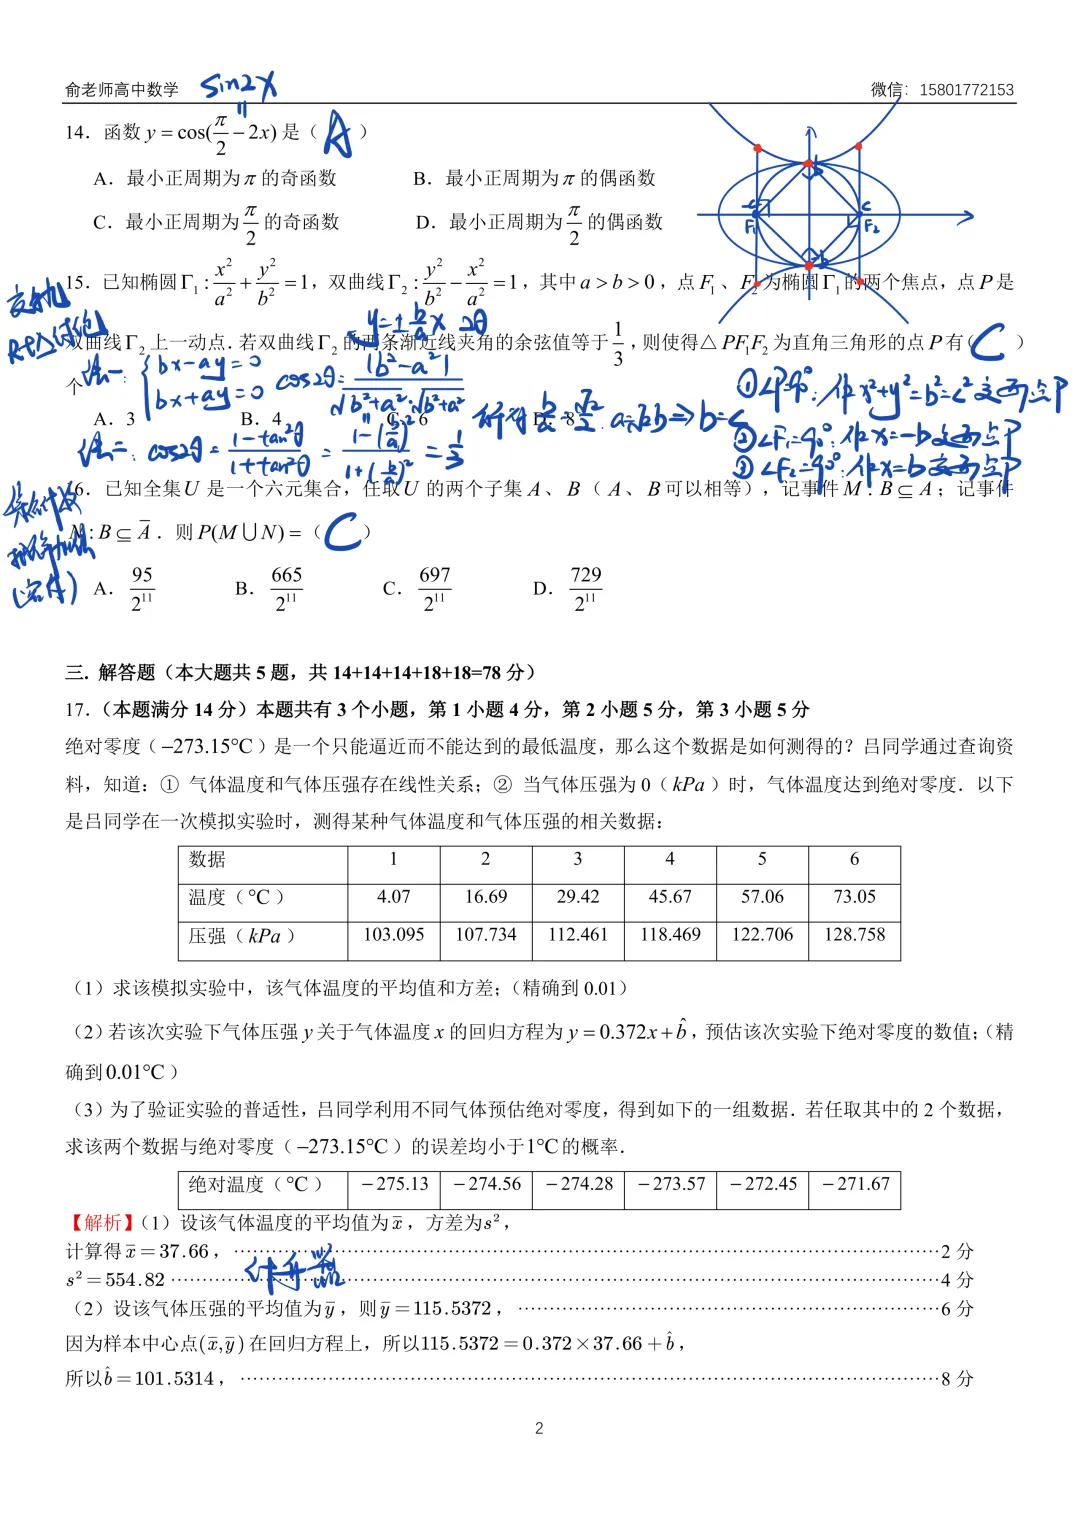 俞老师高中数学 sin2x 微信：15801772153
=
14．函数 y = cos(π/2 − 2x) 是（ A ）
A．最小正周期为 π 的奇函数 B．最小正周期为 π 的偶函数
C．最小正周期为 π/2 的奇函数 D．最小正周期为 π/2 的偶函数
b
-c c
F₁ F₂
-b
15．已知椭圆 Γ₁ : x²/a² + y²/b² = 1，双曲线 Γ₂ : y²/b² − x²/a² = 1，其中 a > b > 0，点 F₁、F₂ 为椭圆 Γ₁ 的两个焦点，点 P 是
y=±b/a x 2θ
双曲线 Γ₂ 上一动点．若双曲线 Γ₂ 的两条渐近线夹角的余弦值等于 1/3，则使得△PF₁F₂ 为直角三角形的点 P 有（ C ）
个
法一: { bx-ay=0 bx+ay=0 cos2θ= |b²-a²| / √b²+a²·√b²+a²
①∠P=90°: 作x²+y²=b²=c²交两点P
A．3 B．4 C．6 D．8
b/a=√2/2 a=√2b⇒b=c
②∠F₁=90°: 作x=-b交两点P
法二: cos2θ= 1-tan²θ / 1+tan²θ = 1-(b/a)² / 1+(b/a)² = 1/3
③∠F₂=90°: 作x=b交两点P
16．已知全集 U 是一个六元集合，任取 U 的两个子集 A、B（ A、B 可以相等），记事件 M : B ⊆ A；记事件
N : B ⊆ A̅．则 P(M ∪ N) =（ C ）
A．95/2¹¹ B．665/2¹¹ C．697/2¹¹ D．729/2¹¹
三. 解答题（本大题共 5 题，共 14+14+14+18+18=78 分）
17.（本题满分 14 分）本题共有 3 个小题，第 1 小题 4 分，第 2 小题 5 分，第 3 小题 5 分
绝对零度（−273.15°C）是一个只能逼近而不能达到的最低温度，那么这个数据是如何测得的？吕同学通过查询资
料，知道：① 气体温度和气体压强存在线性关系；② 当气体压强为 0（kPa）时，气体温度达到绝对零度．以下
是吕同学在一次模拟实验时，测得某种气体温度和气体压强的相关数据：
数据 1 2 3 4 5 6
温度（°C） 4.07 16.69 29.42 45.67 57.06 73.05
压强（kPa） 103.095 107.734 112.461 118.469 122.706 128.758
（1）求该模拟实验中，该气体温度的平均值和方差；（精确到 0.01）
（2）若该次实验下气体压强 y 关于气体温度 x 的回归方程为 y = 0.372x + b̂，预估该次实验下绝对零度的数值；（精
确到 0.01°C）
（3）为了验证实验的普适性，吕同学利用不同气体预估绝对零度，得到如下的一组数据．若任取其中的 2 个数据，
求该两个数据与绝对零度（−273.15°C）的误差均小于 1°C 的概率．
绝对温度（°C） −275.13 −274.56 −274.28 −273.57 −272.45 −271.67
【解析】（1）设该气体温度的平均值为 x̅，方差为 s²，
计算得 x̅ = 37.66，……………………2 分
s² = 554.82 ……………………4 分
计算器
（2）设该气体压强的平均值为 y̅，则 y̅ = 115.5372，……………………6 分
因为样本中心点(x̅, y̅) 在回归方程上，所以 115.5372 = 0.372×37.66 + b̂，
所以 b̂ = 101.5314，……………………8 分
2